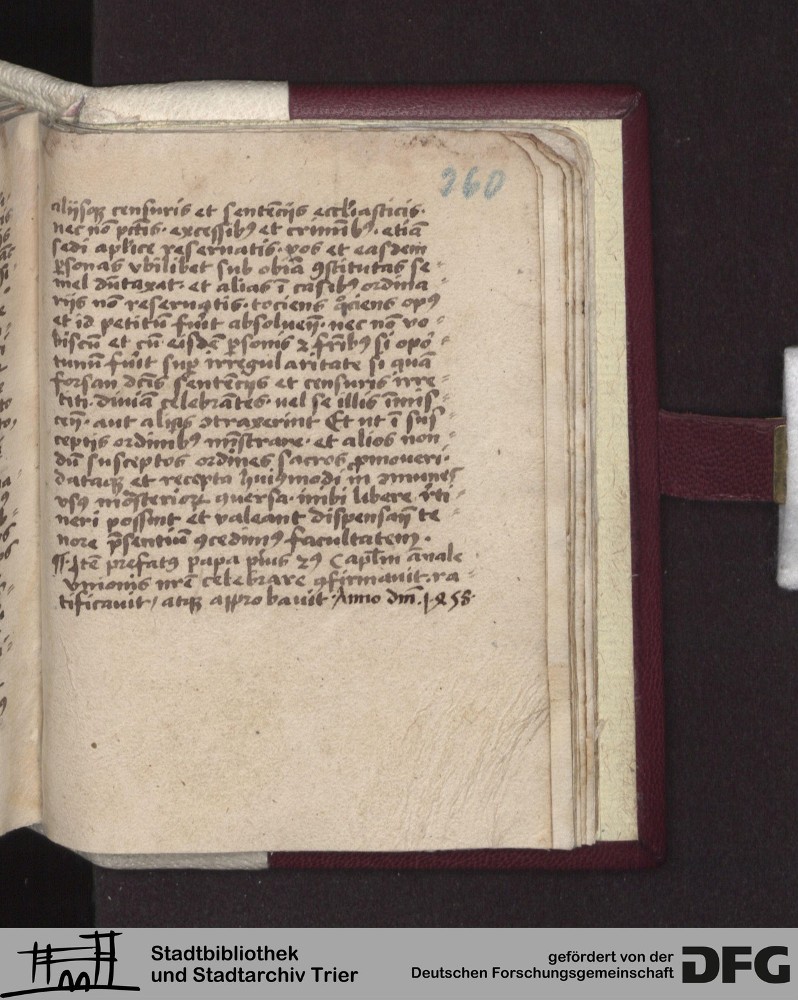 260
alijsq censuris et sentēcijs eccl̄iasticis·
nec nō pctīs· excessibꝰ et crimībꝰ· etiā
sedi apl̄ice reseruatis· vos et easdem
ꝑsonas vbilibet sub obiā ꝯstitutas se-
mel dūtaxat· et alias ī casibꝰ ordina-
rijs nō reseruatis· tociens qͦciens opꝰ
et id petitū fuīt absoluen̄· nec nō vo-
biscū et cū eisdē ꝑsonis ⁊ fr̄ibꝰ si opoʳ-
tunū fuīt suꝑ irregularitate si quā
forsan dcīs sentēcijs et censuris irre-
titi· diuīa celebrātes· vel se illis īmis-
cen̄· aut alias ꝯtraxerint Et vt ī sus-
ceptis ordinibꝰ mīstrare· et alios non-
dū susceptos ordines sacros ꝓmoueri·
dataqꝫ et recepta huiꝰmodi in ꝯmunes
vsꝰ mōsterioꝝ ꝯuersa· inibi libere reti-
neri possint et valeant dispensan̄ te-
nore p̄sentiū ꝯcedimꝰ facultatem·
¶ Itē prefatꝰ papa piꝰ 2ꝰ Capl̄m ānale
vnionis nr̄e celebrare ꝯfirmauit· ra-
tificauit / atqꝫ approbauit· Anno dn̄i· 1458·
Stadtbibliothek
und Stadtarchiv Trier
gefördert von der
Deutschen Forschungsgemeinschaft
DFG